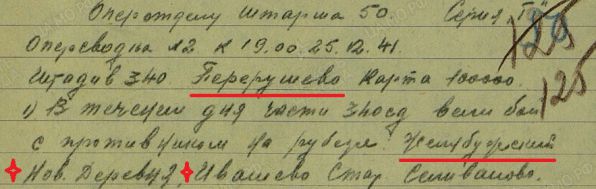 Оперотделу штарма 50. Серия "Г"
Оперсводка №2 к 19.00 25.12.41.
Штадив 340 Перерушево Карта 100000.
125
1) В течении дня части 340сд вели бой
с противником на рубеже:
Нов. Деревня, Ивашево Стар. Селиваново.